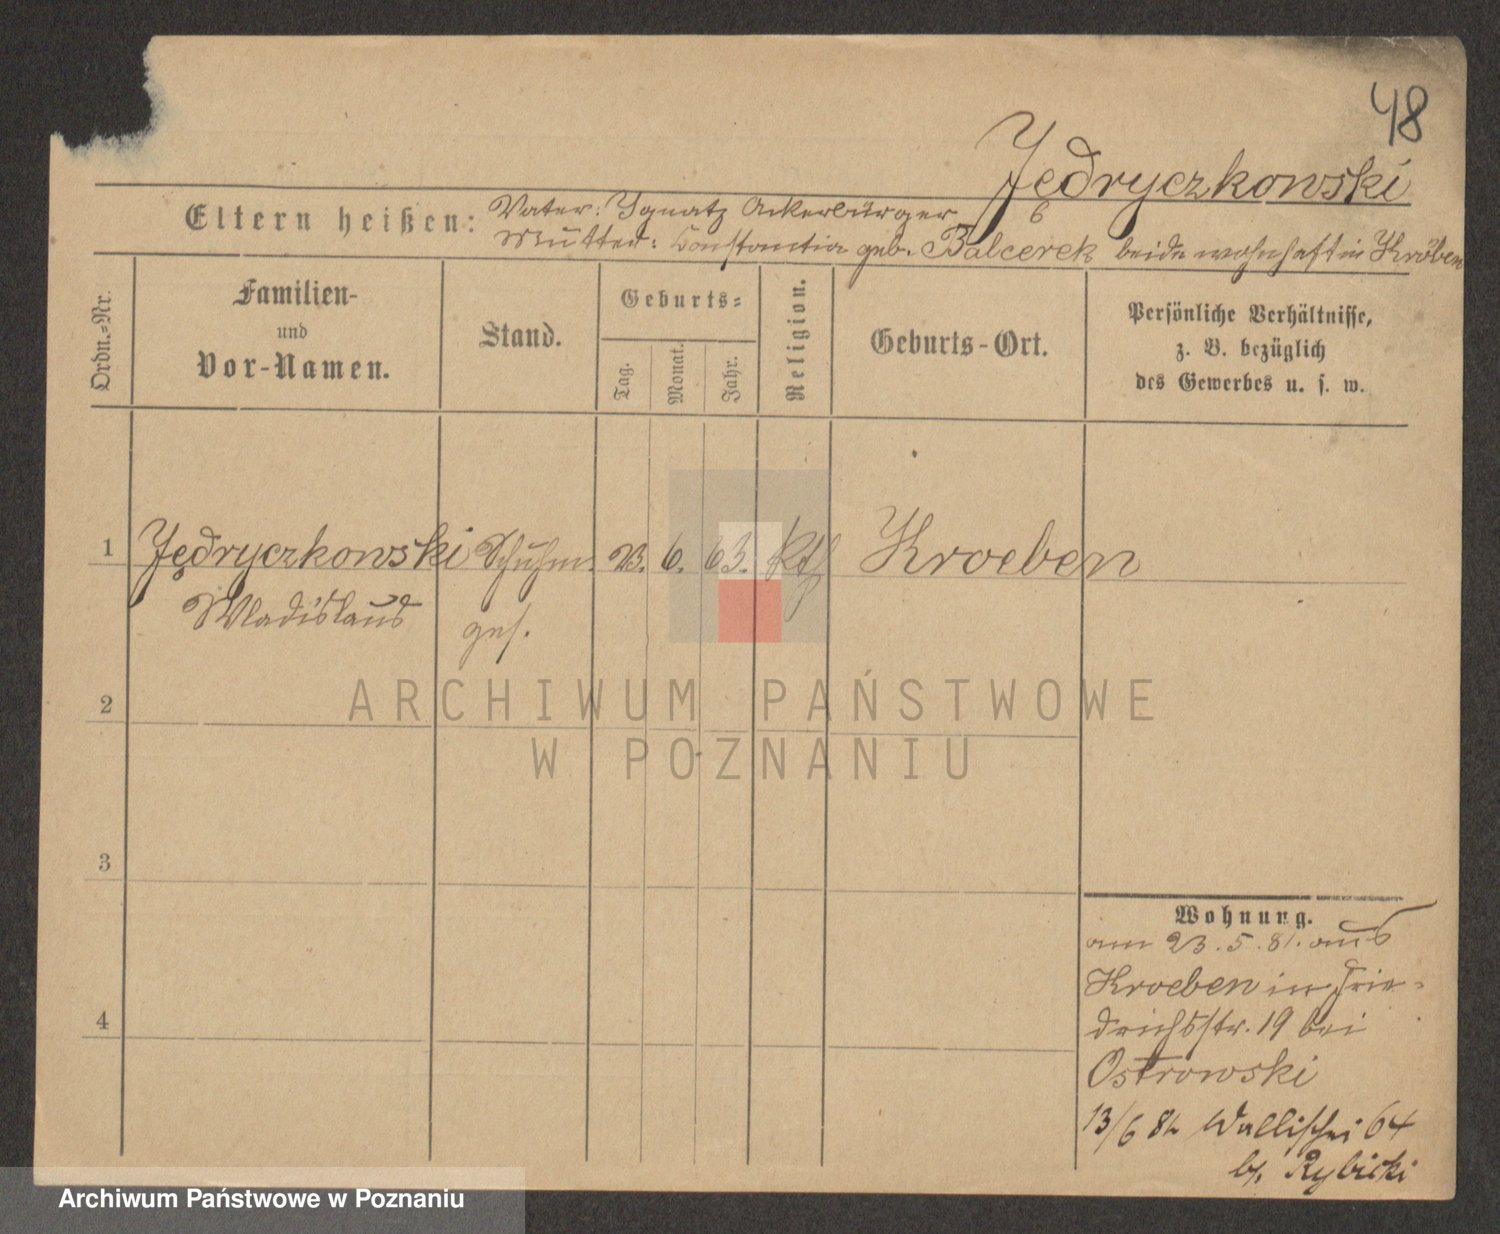 48
Jędryczkowski
6
Eltern heißen: Vater: Ignatz Ackerbürger
Mutter: Constantia geb. Balcerek beide wohnhaft in Kröben
Ordn.=Nr.
Familien-
und
Vor-Namen.
Stand.
Geburts=
Tag.
Monat.
Jahr.
Religion.
Geburts-Ort.
Persönliche Verhältnisse,
z. B. bezüglich
des Gewerbes u. s. w.
1 Jędryczkowski Schuhm. 23. 6. 63. kth Kroeben
Wladislaus ges.
2
3
4
Wohnung.
am 23.5.81. aus
Kroeben in Frie-
drichsstr. 19 bei
Ostrowski
13/6 82 Wallischei 64
b/. Rybicki
ARCHIWUM PAŃSTWOWE
W POZNANIU
Archiwum Państwowe w Poznaniu